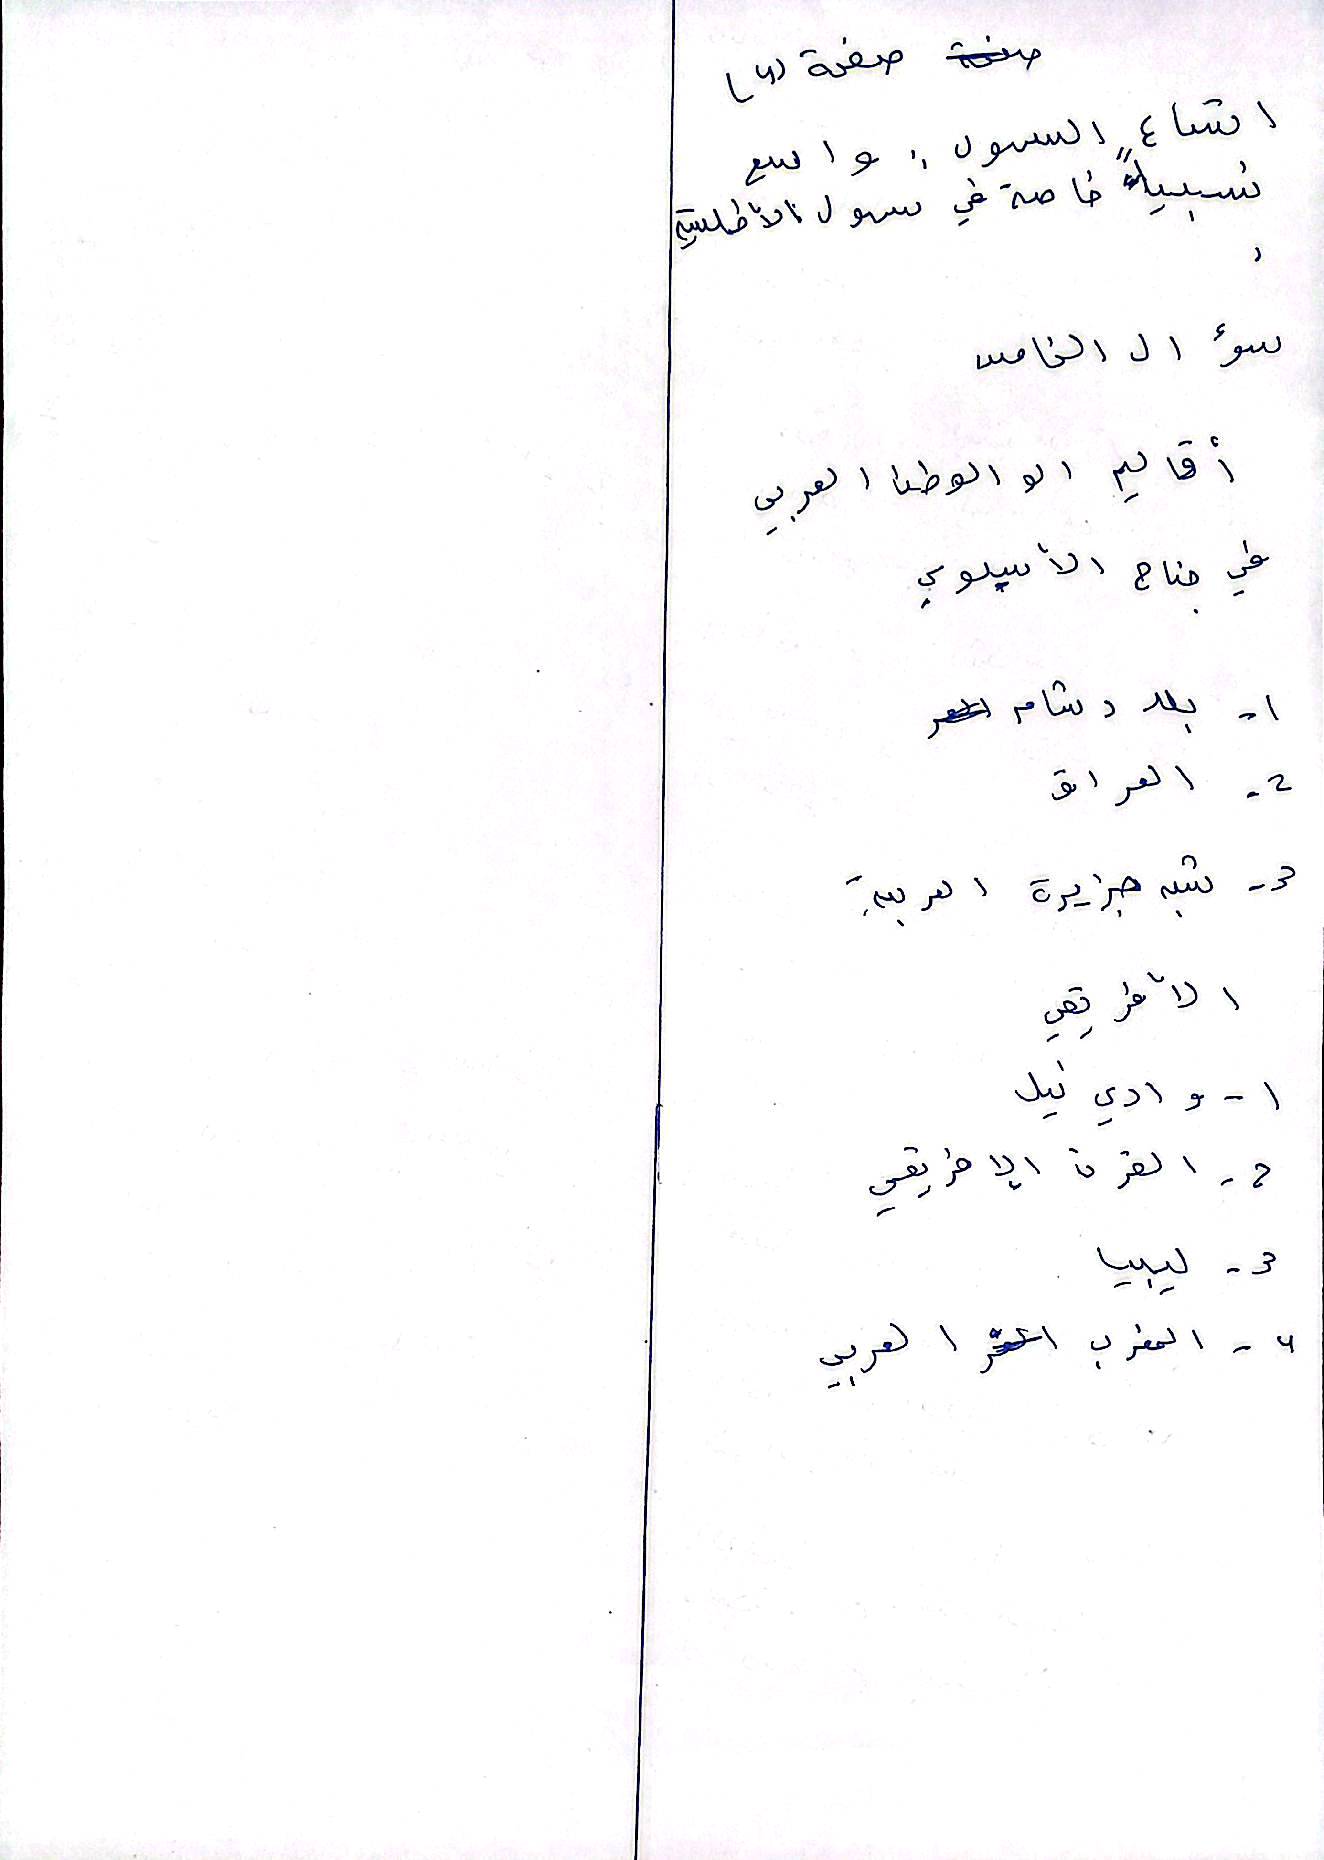 صفحة صفحة (4)
اتساع السهول: واسع
نسبياً خاصة في سهول الأطلسية
سؤال الخامس
أقاليم الو الوطن العربي
في جناح الأسيوي
1- بلاد شام
2- العراق
3- شبه جزيرة العربية
الأفريقي
1- وادي نيل
2- القرن الإفريقي
3- ليبيا
4- المغرب العربي